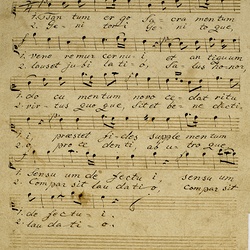 1. Tan tum er go, Sa - cra men tum
2. Ge - ni tori Ge - ni to que,
1. vene re mur cer nu - i, et an tiquum
2. lauset ju bi la ti - o, Sa - lus honor,
1. do cu men tum novo ce dat ri tu
2. vir - tus quo que, sit et be ne dicti
1. i, præstet fi - des supple mentum
2. o, pro ce den ti, ab u - tro que,
1. sen su um de - fec tu - i, sen su um
2. Com par sit lau da ti o, Com par sit
1. de fec tu - i.
2. lau da ti - o.